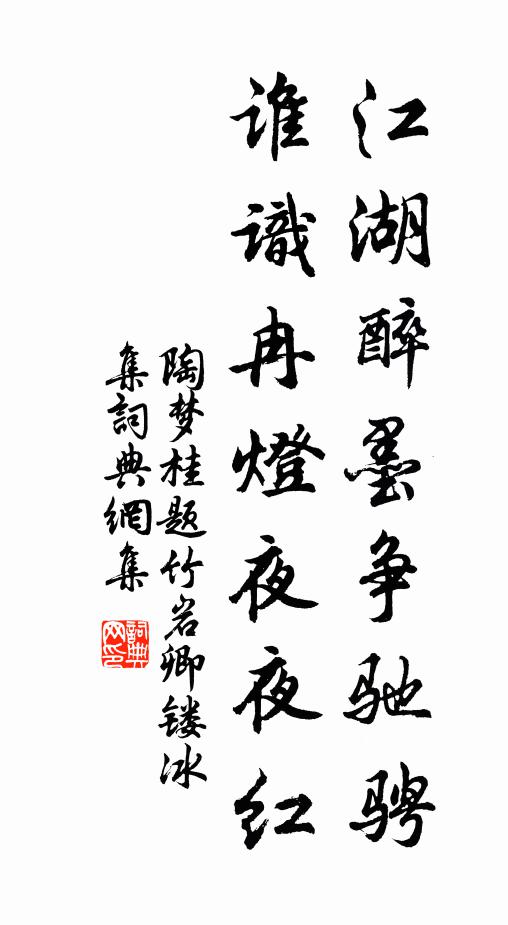 江湖醉墨争驰骋
谁識冉燈夜夜红
陶梦桂题竹岩卿镂冰
集詞典網集
詞典网印